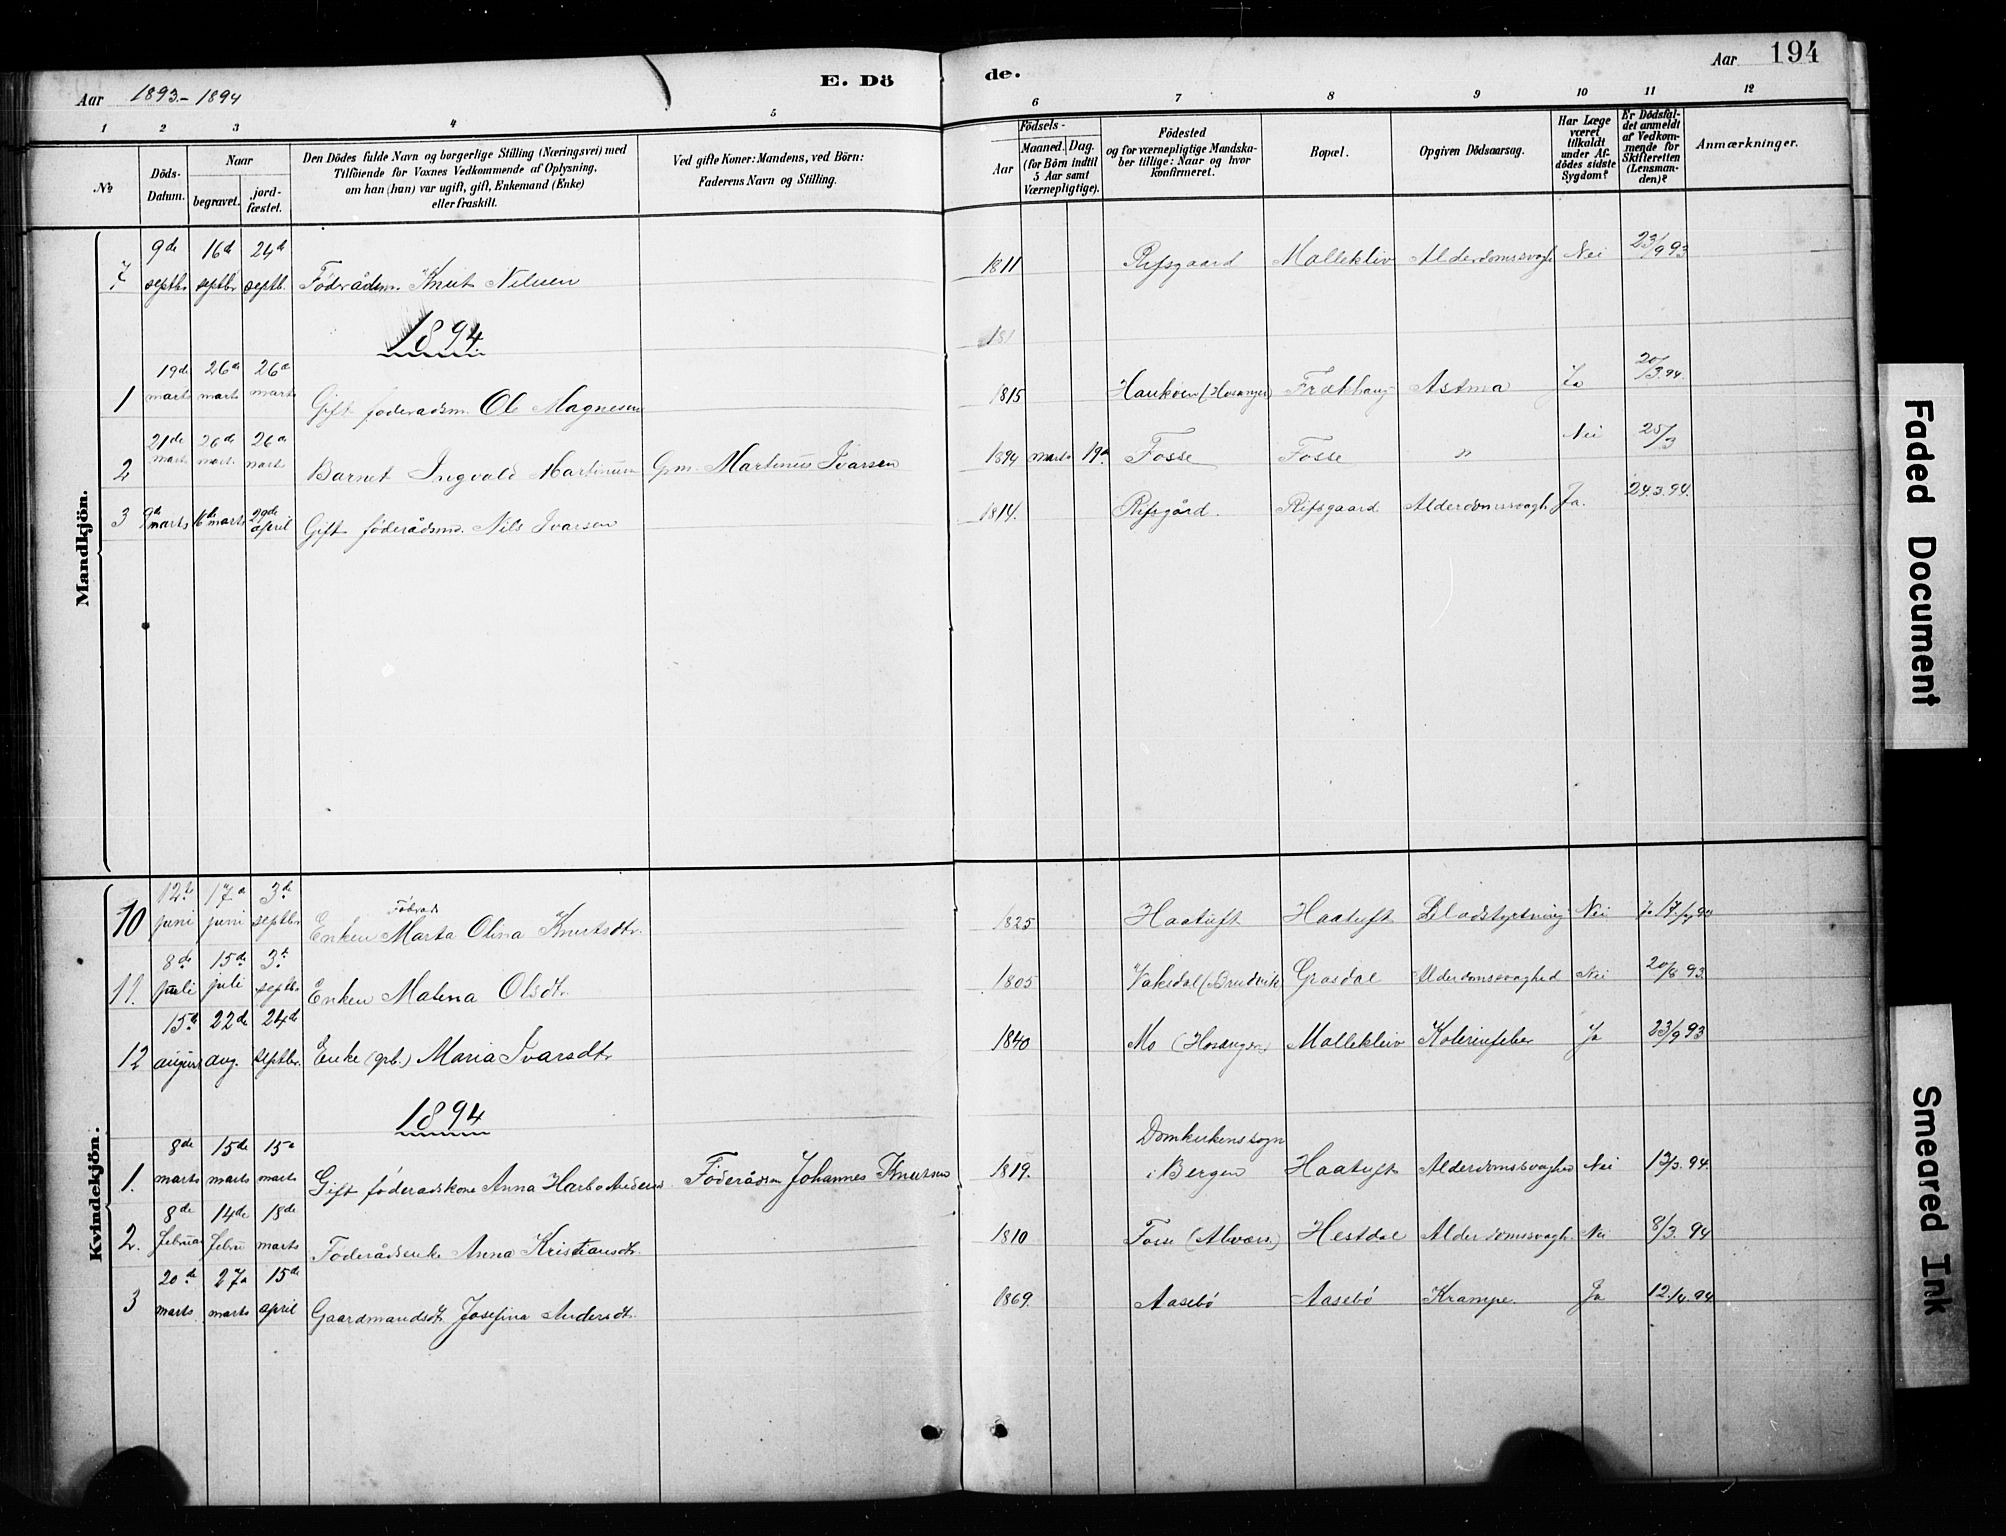 Aar 1893-1894
E. Dö
de.
Aar 194
1 2 3 4 5
6 7 8 9 10 11 12
No
Döds-
Datum.
Naar
begravet.
jord-
fæstet.
Den Dödes fulde Navn og borgerlige Stilling (Næringsvei) med
Tilföiende for Voxnes Vedkommende af Oplysning,
om han (hun) var ugift, gift, Enkemand (Enke)
eller fraskilt.
Ved gifte Koner: Mandens, ved Börn:
Faderens Navn og Stilling.
Födsels-
Aar
Maaned. Dag.
(for Börn indtil
5 Aar samt
Værnepligtige).
Födested
og for værnepligtige Mandska-
ber tillige: Naar og hvor
konfirmeret.
Bopæl.
Opgiven Dödsaarsag.
Har Læge
været
tilkaldt
under Af-
dödes sidste
Sygdom?
Er Dödsfal-
det anmeldt
af Vedkom-
mende for
Skifteretten
(Lensman-
den)?
Anmærkninger.
Mandkjön.
9de 16d 24d
7 septbr septbr septb. Föderådsm. Knut Nilssen 1811 Rifsgaard Mallekleiv Alderdomssvagh Nei 23/9 93
1894
181
19de 26d 26d
1 marts marts marts Gift föderådsm. Ole Magnesen 1815 (Hosanger) Astma Ja 20/3.94.
21de 26de 26d
2 marts mart. marts Barnet Ingvald Martinusen Gm. Martinus Ivarsen 1894 marts 19d Fosse Fosse " Nei 25/3
3 9de marts 16de marts 29de april Gift föderådsm. Nils Ivarsen 1814. Rifsgård. Rifsgaard Alderdomssvagh. Ja. 24.3.94.
Kvindekjön.
12te 17d 3de
Föderåds
10 juni juni septbr Enken Marta Olina Knutsdtr. 1825 Haatuft Haatuft Blodstyrtning Nei
8de 15de 3de
11. juli juli septbr Enken Malena Olsdtr. 1805 Vaksdal (Bruvik Grasdal Alderdomssvaghed Nei 20/8 93.
15d 22de 24de
12 august aug. septbr. Enke (grb.) Maria Ivarsdtr 1840 Mo (Hosanger) Mallekleiv Ja 23/9 93
1894
8de 15de 15d
Domkirkens sogn
1. marts marts marts Gift föderådskone Anna Föderådsm Johannes Knutsen 1819. i Bergen Haatuft Alderdomssvaghed Nei 13/3. 94.
8de 14de 18de
2. februar febru marts Föderådsenke Anna Kristiansdtr. 1810 Fosse (Alvær) Hestdal Alderdomssvagh. Nei 8/3. 94
20de 27d 15de
3 marts. marts april Gaardmandsdt. Josefina Andersdtr. 1869. Aasebö Aasebö Krampe. Ja 12./4.94
Faded Document
Smeared Ink